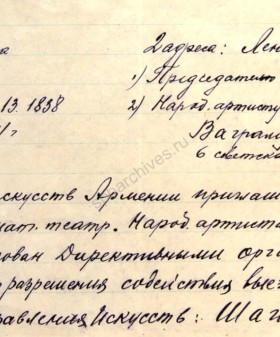 а 2 адреса: Лен
1) Председателю
13. 1838 2) Народ. артисту
г Ваграм
6 советска
искусств Армении приглаш
мат. театр. Народ. артиста
рован Директивными орга
разрешения содействия выез
равления Искусств: Шаг
archives.ru